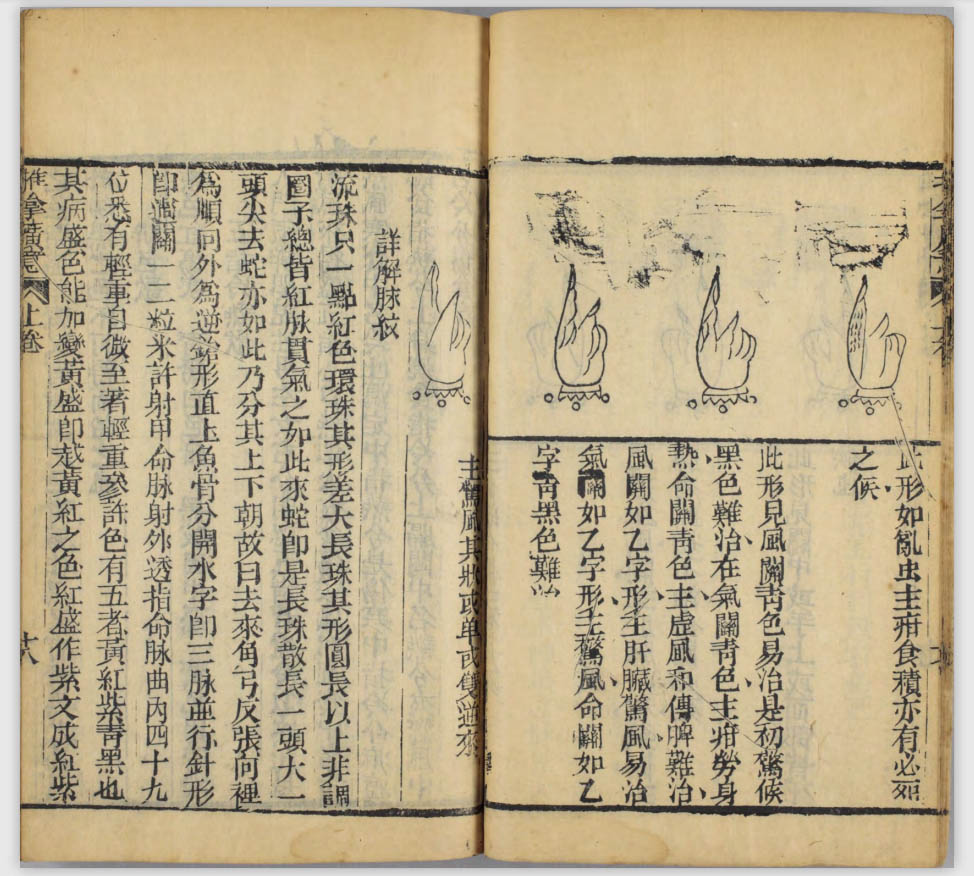 此形如亂虫主疳食積亦有必死
之候
此形見風關青色易治是初驚候
黑色難治在氣關青色主疳勞身
熱命關青色主虛風和傳脾難治
風關如乙字形主肝臟驚風易治
氣關如乙字形主驚風命關如乙
字青黑色難治
主驚風其狀或单或雙逆來
詳解脉紋
流珠只一點紅色環珠其形差大長珠其形圓長以上非謂
圈子總皆紅脉貫氣之如此來蛇卽是長珠散長一頭大一
頭尖去蛇亦如此乃分其上下朝故曰去來角弓反張向裡
爲順向外爲逆鎗形直上魚骨分開水字卽三脉並行針形
卽過關一二粒米許射甲命脉射外透指命脉曲內四十九
位悉有輕重自微至著輕重參詳色有五者黃紅紫靑黑也
其病盛色能加變黃盛卽越黃紅之色紅盛作紫文成紅紫
推拿廣意 上卷
十八